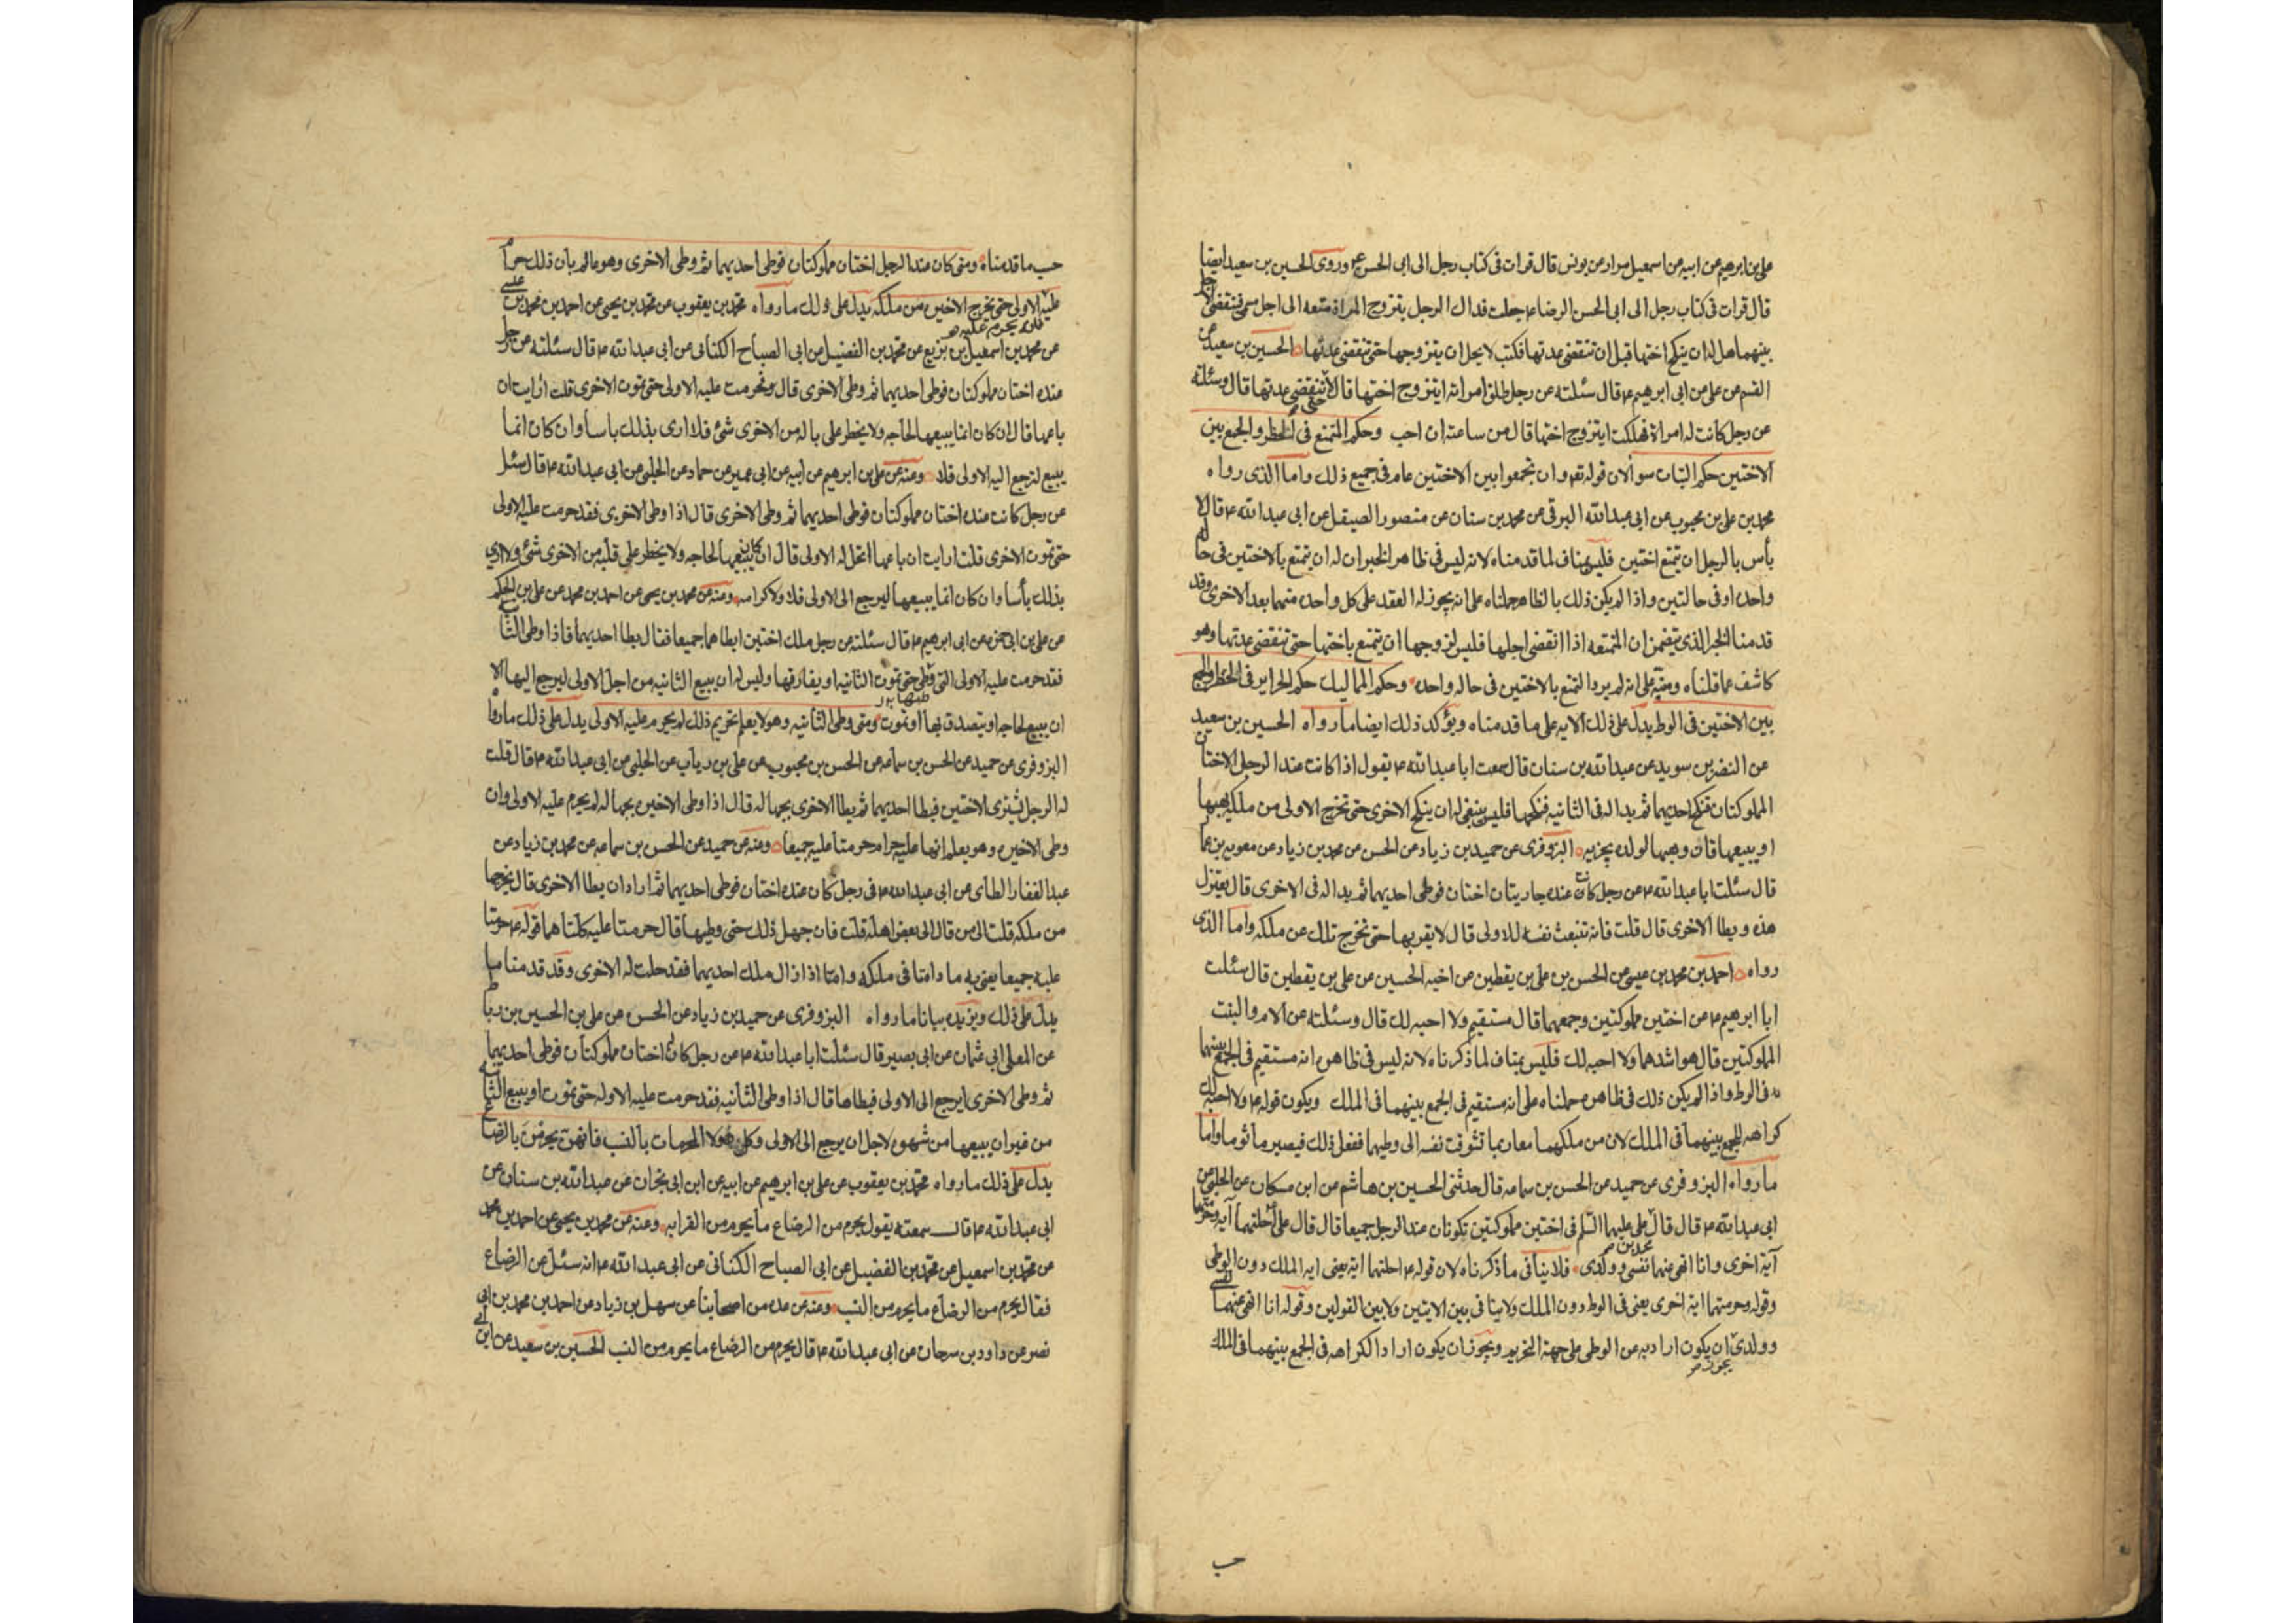 علی بن ابرهیم عن ابیه عن اسمعیل بن مرار عن یونس قال قرات فی کتاب رجل الی ابی الحسن ع وروی الحسین بن سعید ایضا
قال قرات فی کتاب رجل الی ابی الحسن الرضا ع جعلت فداک الرجل یتزوج المراة متعه الی اجل مسمی فینقضی الاجل
بینهما هل له ان ینکح اختها قبل ان تنقضی عدتها فکتب لا یحل ان یتزوجها حتی تنقضی عدتها الحسین بن سعید عن
القسم عن علی عن ابی ابرهیم ع قال سئلته عن رجل طلق امراته ایتزوج اختها قال لا حتی تنقضی عدتها قال وسئلته
عن رجل کانت له امراة فهلکت ایتزوج اختها قال من ساعته ان احب وحکم المتمتع فی الحظر والجمع بین
الاختین حکم البتات سوا لان قوله تعه وان تجمعوا بین الاختین عام فی جمیع ذلک واما الذی رواه
محمد بن علی بن محبوب عن ابی عبدالله البرقی عن محمد بن سنان عن منصور الصیقل عن ابی عبدالله ع قال لا
بأس بالرجل ان یتمتع اختین فلیس بمناف لما قدمناه لانه لیس فی ظاهر الخبر ان له ان یتمتع بالاختین فی حاله
واحده او فی حالتین واذا لم یکن ذلک بالظاهر حملناه علی انه یجوز له العقد علی کل واحده منهما بعد الاخری وقد
قدمنا الخبر الذی یتضمن ان المتمتعه اذا انقضی اجلها فلیس لزوجها ان یتمتع باختها حتی تنقضی عدتها وهو
کاشف عما قلناه ومنبه علی انه لم یرد التمتع بالاختین فی حاله واحده وحکم الممالیک حکم الحرایر فی الحظر والجمع
بین الاختین فی الوط یدل علی ذلک الایه علی ما قدمناه ویؤکد ذلک ایضا ما رواه الحسین بن سعید
عن النضر بن سوید عن عبدالله بن سنان قال سمعت ابا عبدالله ع یقول اذا کانت عند الرجل الاختان
المملوکتان فنکح احدیهما ثم بدا له فی الثانیه فنکحها فلیس ینبغی له ان ینکح الاخری حتی تخرج الاولی من ملکه یهبها
او یبیعها فان وهبها لولده یجزیه البزوفری عن حمید بن زیاد عن الحسن عن محمد بن زیاد عن معویه بن عمار
قال سئلت ابا عبدالله ع عن رجل کانت عنده جاریتان اختان فوطی احدیهما ثم بدا له فی الاخری قال یعتزل
هذه ویطا الاخری قال قلت فانه تنبعث نفسه للاولی قال لا یقربها حتی تخرج تلک عن ملکه واما الذی
رواه احمد بن محمد بن عیسی عن الحسن بن علی بن یقطین عن اخیه الحسین عن علی بن یقطین قال سئلت
ابا ابرهیم ع عن اختین مملوکتین وجمعهما قال مستقیم ولا احبه لک قال وسئلته عن الام والبنت
المملوکتین قال هو اشدهما ولا احبه لک فلیس بمناف لما ذکرناه لانه لیس فی ظاهره انه مستقیم فی الجمع بینهما
فی الوط واذا لم یکن ذلک فی ظاهره حملناه علی انه مستقیم فی الجمع بینهما فی الملک ویکون قوله ع ولا احبه لک
کراهه للجمع بینهما فی الملک لان من ملکهما معا ربما تشوقت نفسه الی وطیهما ففعل ذلک فیصیر ماثوما واما
ما رواه البزوفری عن حمید عن الحسن بن سماعه قال حدثنی الحسین بن هاشم عن ابن مسکان عن الحلبی عن
ابی عبدالله ع قال قال علی علیهما السلم فی اختین مملوکتین تکونان عند الرجل جمیعا قال قال علی احلتهما آیه وحرمتهما
آیة اخری وانا انهی عنهما نفسی وولدی فلا ینافی ما ذکرناه لان قوله ع احلتهما ایة یعنی ایه الملک دون الوطی
وقوله وحرمتهما ایه اخری یعنی فی الوط دون الملک ولا ینافی بین الایتین ولا بین القولین وقوله انا انهی عنهما نفسی
وولدی یجوز ان یکون اراد به عن الوطی علی جهة التحریم ویجوز ان یکون اراد الکراهه فی الجمع بینهما فی الملک
حسب
حسب ما قدمناه ومتی کان عند الرجل اختان مملوکتان فوطی احدیهما ثم وطی الاخری وهو عالم بان ذلک حرام
علیه الاولی حتی یخرج الاخیره من ملکه یدل علی ذلک ما رواه محمد بن یعقوب عن محمد بن یحیی عن احمد بن محمد بن عیسی
فانه یحرم علیه
عن محمد بن اسمعیل بن بزیع عن محمد بن الفضیل عن ابی الصباح الکنانی عن ابی عبدالله ع قال سئلته عن رجل
عنده اختان مملوکتان فوطی احدیهما ثم وطی الاخری قال حرمت علیه الاولی حتی تموت الاخری قلت ارایت ان
باعها قال ان کان انما یبیعها لحاجه ولا یخطر علی باله من الاخری شئ فلا اری بذلک باسا وان کان انما
یبیع لیرجع الیه الاولی فلا ومنه عن علی بن ابرهیم عن ابیه عن ابن ابی عمیر عن حماد عن الحلبی عن ابی عبدالله ع قال سئل
عن رجل کانت عنده اختان مملوکتان فوطی احدیهما ثم وطی الاخری قال اذا وطی الاخری فقد حرمت علیه الاولی
حتی تموت الاخری قلت ارایت ان باعها اتحل له الاولی قال ان کان یبیعها لحاجه ولا یخطر علی قلبه من الاخری شئ ولا اری
بذلک بأسا وان کان انما یبیعها لیرجع الی الاولی فلا ولا کرامه ومنه عن محمد بن یحیی عن احمد بن محمد عن علی بن الحکم
عن علی بن ابی حمزه عن ابی ابرهیم ع قال سئلته عن رجل ملک اختین ایطاهما جمیعا فقال یطا احدیهما فاذا وطی الثانیه
فقد حرمت علیه الاولی التی وطی حتی تموت الثانیه او یفارقها ولیس له ان یبیع الثانیه من اجل الاولی لیرجع الیها الا
ان یبیع لحاجه او یتصدق بها او تموت ومتی وطی الثانیه وهو لا یعلم تحریم ذلک لم یحرم علیه الاولی یدل علی ذلک ما رواه
البزوفری عن حمید عن الحسن بن سماعه عن الحسن بن محبوب عن علی بن ریاب عن الحلبی عن ابی عبدالله ع قال قلت
له الرجل یشتری الاختین فیطا احدیهما ثم یطا الاخری بجهاله قال اذا وطی الاخیره بجهاله لم یحرم علیه الاولی وان
وطی الاخیره وهو یعلم انها علیه حرام حرمتا علیه جمیعا ومنه عن حمید عن الحسن بن سماعه عن محمد بن زیاد عن
عبدالغفار الطائی عن ابی عبدالله ع فی رجل کان عنده اختان فوطی احدیهما ثم اراد ان یطا الاخری قال یخرجها
من ملکه قلت الی من قال الی بعض اهله قلت فان جهل ذلک حتی وطیها قال حرمتا علیه کلتاهما قوله ع حرمتا
علیه جمیعا یعنی به ما دامتا فی ملکه واما اذا زال ملک احدیهما فقد حلت له الاخری وقد قدمنا ما
یدل علی ذلک ویزیده بیانا ما رواه البزوفری عن حمید بن زیاد عن الحسن عن علی بن الحسین بن رباط
عن المعلی ابی عثمان عن ابی بصیر قال سئلت ابا عبدالله ع عن رجل کان له اختان مملوکتان فوطی احدیهما
ثم وطی الاخری ایرجع الی الاولی فیطاها قال اذا وطی الثانیه فقد حرمت علیه الاوله حتی تموت او یبیع الثانیه
من غیر ان یبیعها من شهوه لاجل ان یرجع الی الاولی وکل هولا المحرمات بالنسب فانهن یحرمن بالرضاع
یدل علی ذلک ما رواه محمد بن یعقوب عن علی بن ابرهیم عن ابیه عن ابن ابی نجران عن عبدالله بن سنان عن
ابی عبدالله ع قال سمعته یقول یحرم من الرضاع ما یحرم من القرابه ومنه عن محمد بن یحیی عن احمد بن محمد
عن محمد بن اسمعیل عن محمد بن الفضیل عن ابی الصباح الکنانی عن ابی عبدالله ع انه سئل عن الرضاع
فقال یحرم من الرضاع ما یحرم من النسب ومنه عن عده من اصحابنا عن سهل بن زیاد عن احمد بن محمد بن ابی
نصر عن داود بن سرحان عن ابی عبدالله ع قال یحرم من الرضاع ما یحرم من النسب الحسین بن سعید عن ابن ابی